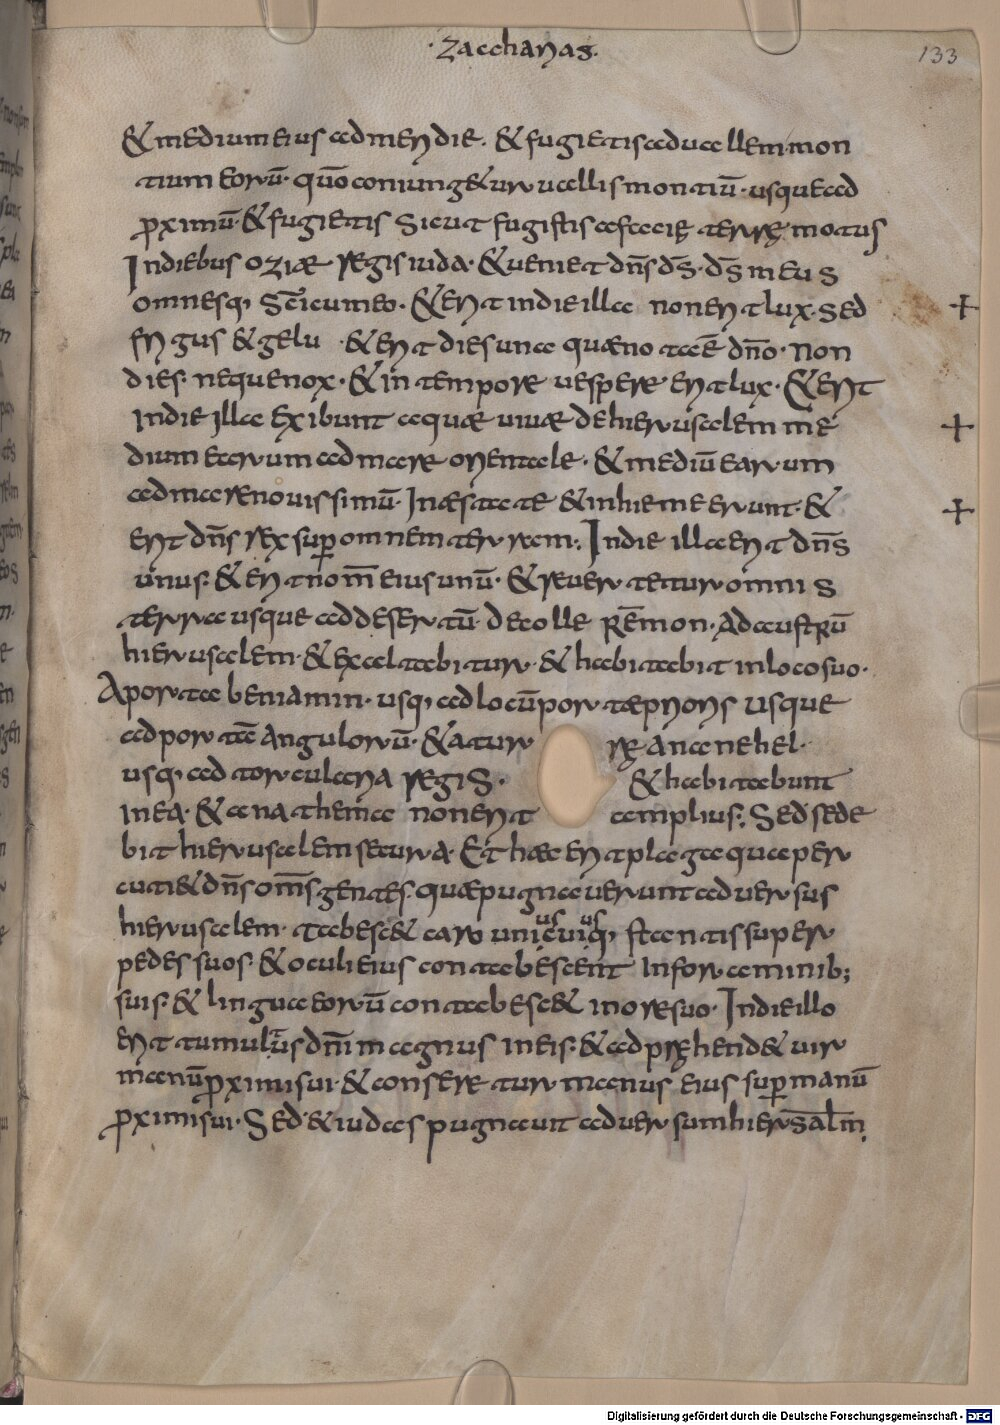 ·Zaccharias·
133
& medium eius ad meridie. & fugietis ad uallem mon
tium eorū· quō coniung&ur uallis montiū· usque ad
ꝓximū· & fugietis sicut fugistis a facie terrę motus
In diebus oziæ regis iuda· & ueniet dn̄s ds̄· ds̄ meus
omnesq; sc̄i cum eo· & erit in die illa non erit lux· sed
frigus & gelu · & erit dies una quæ nota ē dn̄o· non
dies· neque nox· & in tempore uespere erit lux· & erit
in die illa exibunt aquæ uiuæ de hierusalem me
dium earum ad mare orientale· & mediū earum
ad mare nouissimū· In æstate & in hieme erunt· &
erit dn̄s rex sup̄ omnem terram·; In die illa erit dn̄s
unus· & erit nom̄ eius unū· & reuertetur omnis
terra usque ad desertū· de colle rēmon· Ad austrū
hierusalem· & exaltabitur· & habitabit in loco suo·
A porta beniamin· usq; ad locū portæ prioris usque
ad portā angulorū· & a turre ananehel·
usq; ad torcularia regis· & habitabunt
in ea· & anathema non erit amplius·; Sed sede
bit hierusalem secura· Et hæc erit plaga qua per
cuti& dn̄s om̄s gentes· quæ pugnauerunt aduersus
hierusalem· tabesc& caro uniuscuiusq; stantis super
pedes suos· & oculi eius contabescent in foraminib;
suis· & lingua eorū contabesc& in ore suo· In die illo
erit tumultus dn̄i magnus in eis· & adp̄hend& uir
manū ꝓximi sui· & conseretur manus eius sup̄ manū
ꝓximi sui· Sed & iudas pugnauit aduersum hiersal̄m
Digitalisierung gefördert durch die Deutsche Forschungsgemeinschaft - DFG